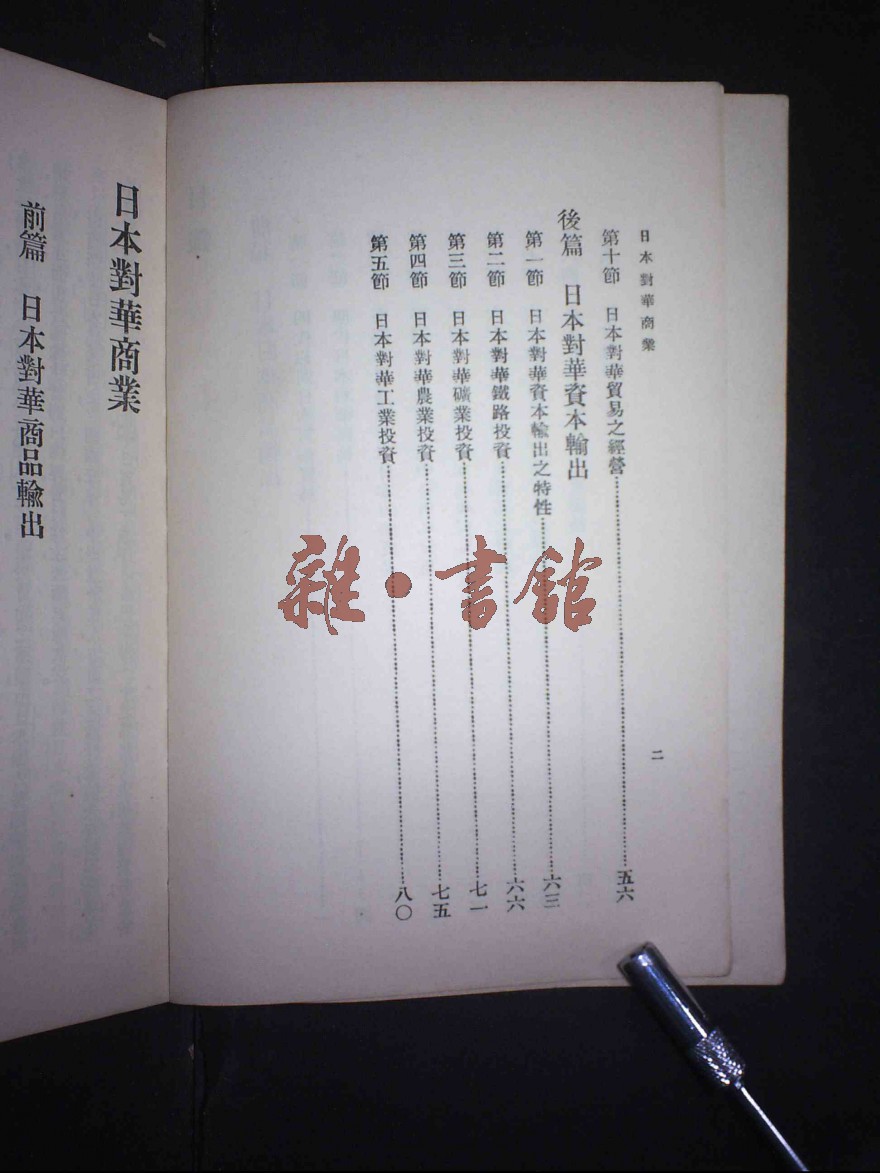 日本對華商業
二
第十節 日本對華貿易之經營…………五六
後篇 日本對華資本輸出
第一節 日本對華資本輸出之特性…………六三
第二節 日本對華鐵路投資…………六六
第三節 日本對華礦業投資…………七一
第四節 日本對華農業投資…………七五
第五節 日本對華工業投資…………八〇
日本對華商業
前篇 日本對華商品輸出
雜·書館